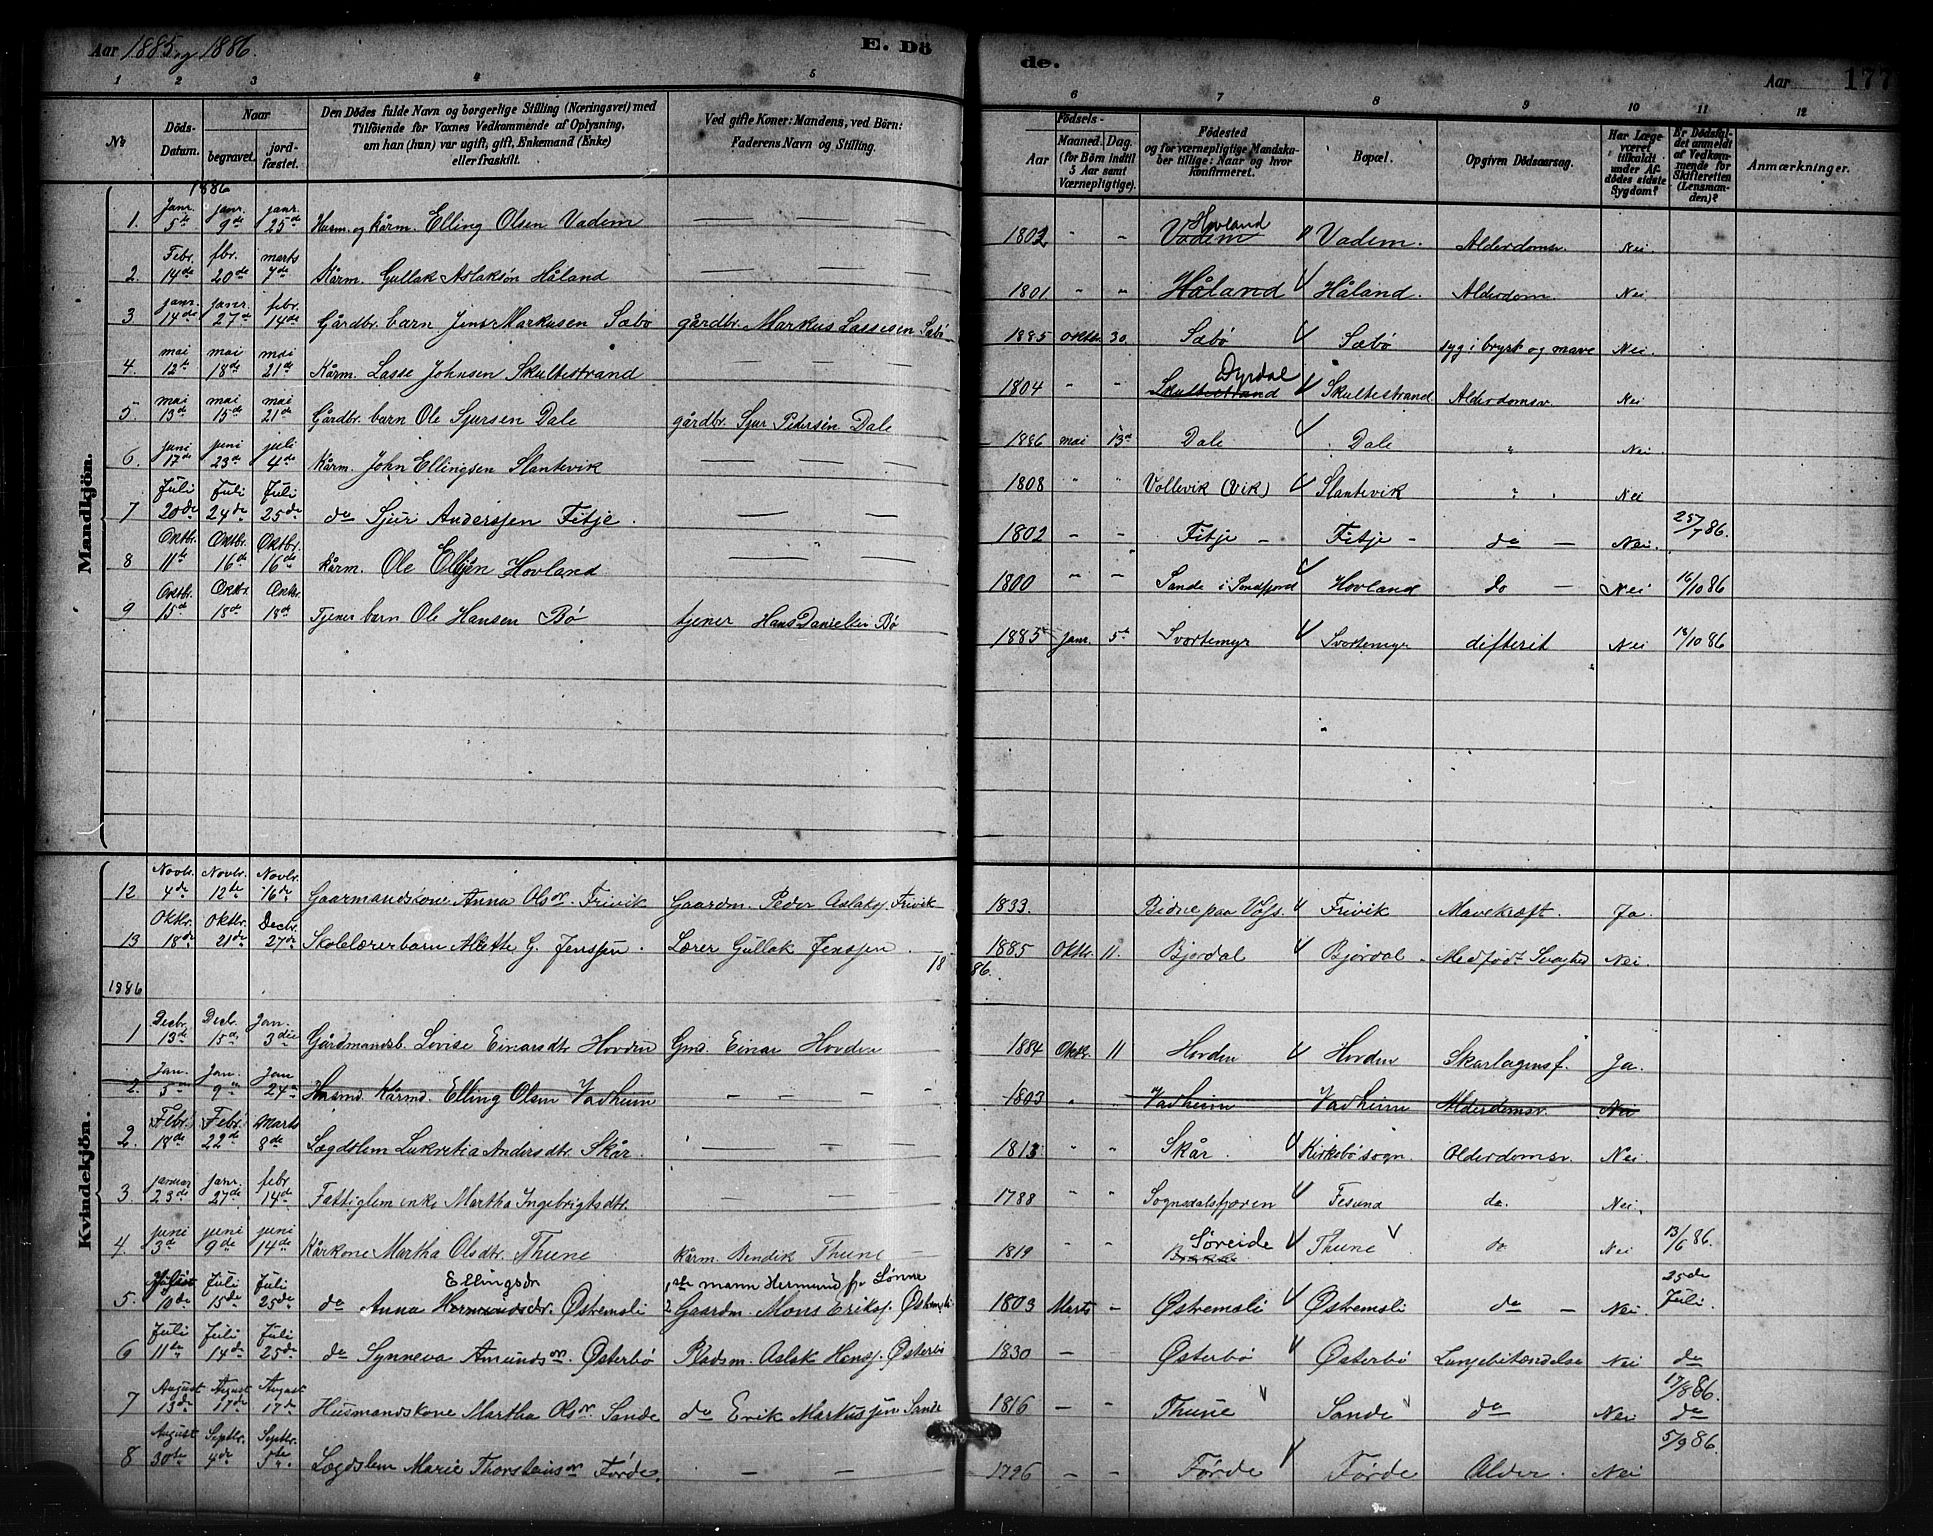 Aar 1885 og 1886.
E. Dö
de.
Aar
177
1 2 3 4 5 6 7 8 9 10 11 12
№
Döds-Datum.
Naar
begravet.
jord-fæstet.
Den Dödes fulde Navn og borgerlige Stilling (Næringsvei) med
Tilföiende for Voxnes Vedkommende af Oplysning,
om han (hun) var ugift, gift, Enkemand (Enke)
eller fraskilt.
Ved gifte Koner: Mandens, ved Börn:
Faderens Navn og Stilling.
Födsels-
Aar
Maaned. (for Börn indtil 5 Aar samt Værnepligtige).
Dag.
Födested
og for værnepligtige Mandskaber tillige: Naar og hvor konfirmeret.
Bopæl.
Opgiven Dödsaarsag.
Har Læge været tilkaldt under Afdödes sidste Sygdom?
Er Dödsfaldet anmeldt af Vedkommende for Skifteretten (Lensmanden)?
Anmærkninger.
Mandkjön.
1886
1. Janr. 5te janr. 9de janr. 25de Husm. og kårm. Elling Olsen Vadem — — — 1802 " " Vadem Hovland Vadem. Alderdomsv. Nei
2. Febr. 14de fbr. 20de marts 7de Kårm. Gullak Aslaksön Håland — — — 1801 " " Håland Håland. Alderdom Nei
3 janr. 14de janr. 27de febr. 14de Gårdbr. barn Jens Markusen Sæbö gårdbr. Markus Lassesen Sæbö 1885 oktbr. 30. Sæbö Sæbö syg i bryst og mave Nei.
4. mai 12te mai 18de mai 21de Kårm. Lasse Johnsen Skultestrand — — — 1804 " " Skultestrand Dyrdal Skultestrand Alderdomsv. Nei
5. mai 13de mai 15de mai 21de Gårdbr. barn Ole Sjursen Dale gårdbr. Sjur Pedersen Dale 1886 mai 13de Dale Dale " Nei
6. juni 17de juni 23de juli 4de Kårm. John Ellingsen Slantevik — — — 1808 " " Vollevik (Vik) Slantevik " Nei
7 Juli 20de Juli 24de Juli 25de do Sjur Anderssen Fitje. — — 1802 — — Fitje — Fitje — do — Nei. 25/7 86.
8 Oktbr. 11te Oktbr. 16de Oktbr. 16de Kårm. Ole Hovland — — — 1800 " — Sande i Söndfjord Hovland do — Nei 16/10 86
9 Oktbr. 15de Oktbr. 18de Oktbr. 18de Tjener barn Ole Hansen Bö tjener Hans Danielsen Bö 1885 janr. 5te Svortemyr Svortemyr difterit Nei 18/10 86
Kvindekjön.
12 Novbr. 4de Novbr. 12te Novbr. 16de Gaarmandskone Anna Olsdr. Frivik Gaardm. Peder Aslaks. Frivik 1833. Bidne paa Vos. Frivik Mavekræft. Ja.
13 Oktbr. 18de Oktbr. 21de Decbr. 27de Skolelærerbarn G. Jenssen. Lærer Gullak Jenssen. 1885 Oktbr. 11. Bjordal Bjordal. Medfödt Svaghed Nei.
1886
18 86.
1 Decbr. 13de Decbr. 15de Jan. 3die Gårdmandsb. Lovise Einarsdtr. Hovden Gmd. Einar Hovden 1884 Oktbr. 11 Hovden Hovden Skarlagensf. Ja.
2. Jan. 5te Jan. 9de Jan 24de Husmd. Kårmd. Elling Olsen Vadheim — — — 1803 " Vadheim Vadheim Alderdomsv. Nei
2. Febr. 18de Febr. 22de Marts 8de Lægdslem Lukretia Andersdtr. Skår. — — 1813 " " Skår. Kirkebö sogn. Alderdomsv. Nei.
3 januar 23de janr. 27de febr. 14de Fattiglem enke Martha Ingebrigtsdtr. — — — 1788 " " Sognsdalsfjæren do. Nei.
4. juni 3de juni 9de juni 14de Kårkone Martha Olsdtr. Thune kårm. Bendik Thune — 1819 " Söreide Thune do Nei 13/6 86.
5. Juli 10de Juli 15de Juli 25de do Anna Ellingsdr Hermundsdr. Østremsli 1ste mann Hermund fr. Lönne 2 Gaardm. Mons Eriks. Østremsli 1803 Marts — Østremsli Østremsli do — Nei 25de Juli.
6 Juli 11te Juli 14de Juli 25de do Synneva Amundsdr. Østerbö Pladsm. Aslak Hanss. Østerbö 1830 — Østerbö Østerbö Lungebetændelse Nei do
7 August 13de August 17de August 17de Husmandskone Martha Olsdr. Sande do Erik Markussen Sande 1816 — — Thune Sande do Nei 17/8 86. do
8 August 30te Septbr. 4de Septbr. 5te Lægdslem Marie Thorsteinsdr Förde. — — 1796 — — Förde Förde Alder. Nei 5/9 86.